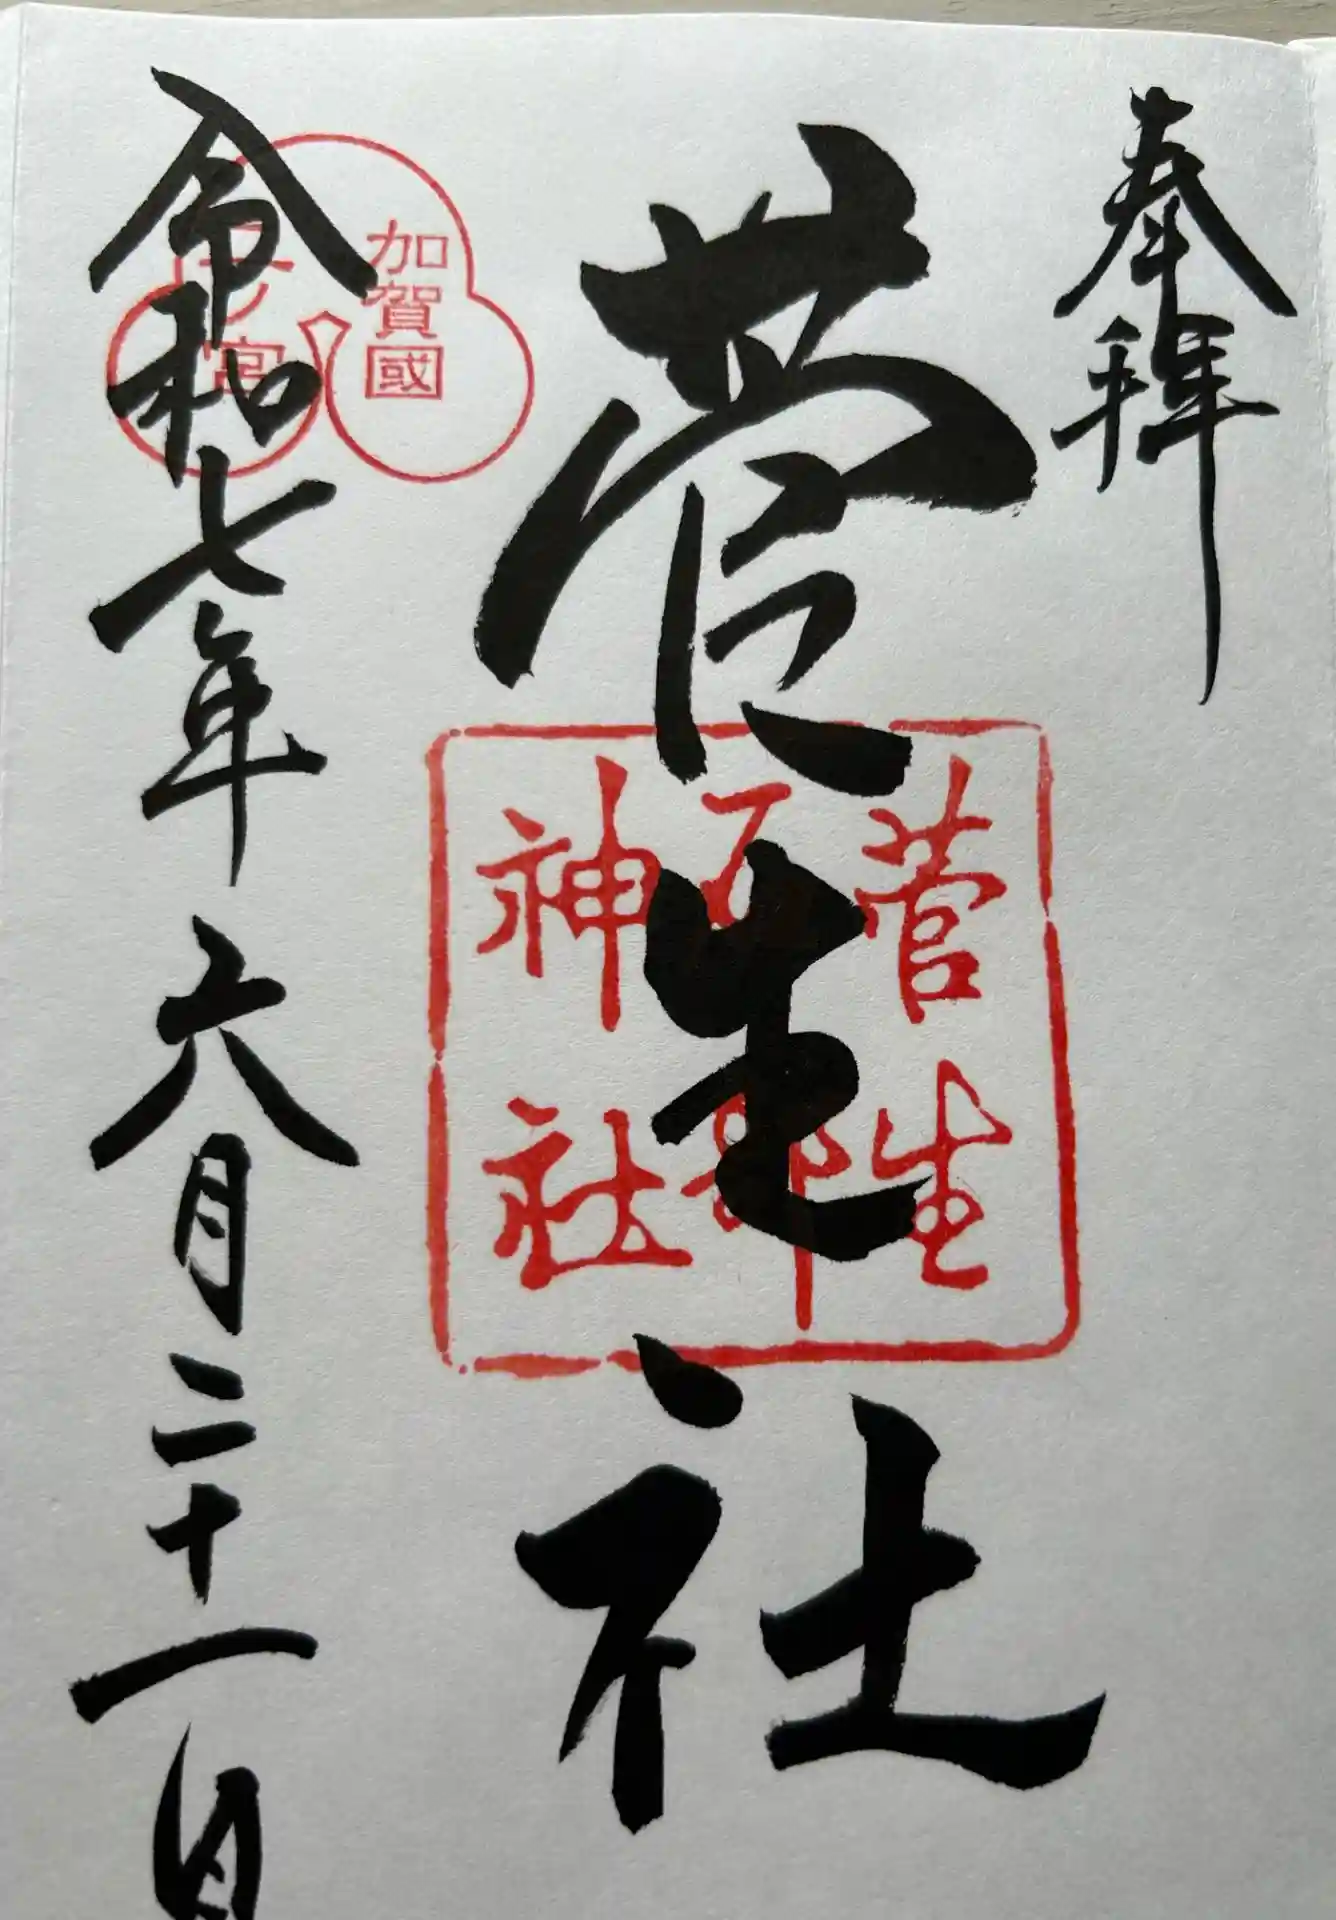 奉拝
菅生社
菅生
石部
神社
加賀國
二ノ宮
令和七年六月二十一日